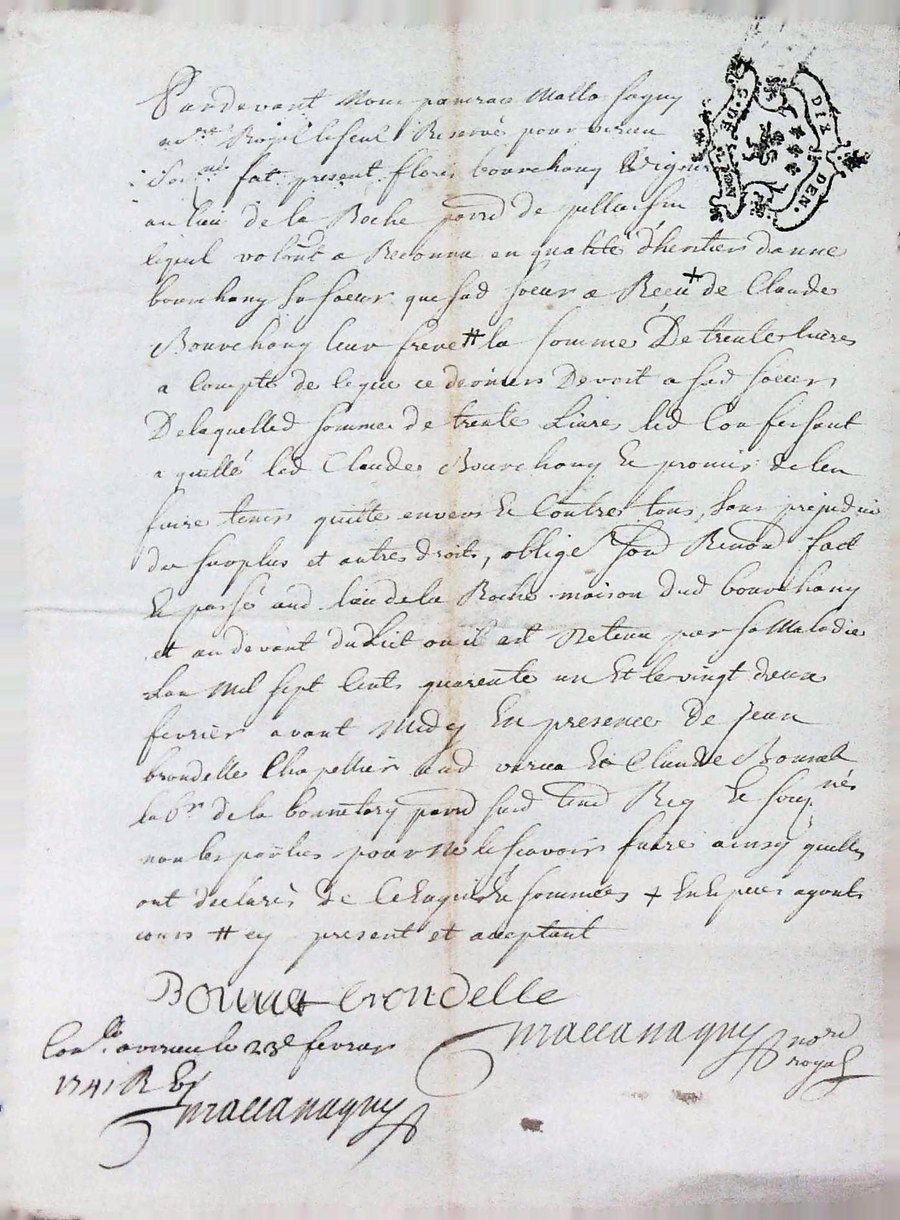 Pardevant Nous
Royal Reservé pour
fut present bourchany
au lieu de la Roche parre de
lequel volont a Reconnu en qualité d'heritier danne
bourchany sa soeur que sad soeur a Reçu + de Claude
Bourchany leur frere # la somme De trente livres
a compte de ce que ce dernier Devoit a sad soeur
De laquelle d somme de trente Livres led Confessant
a quitté led Claude Bourchany et promis de len
faire tenir quitte envers et Contre tous, sans prejudice
du surplus et autres droits, oblige fait
et passé aud lieu de la Roche maison dud bourchany
et au devant du Lit ou il est Retenu par sa Maladie
Lan Mil sept Cents quarente un Et le vingt deux
fevrier avant Midy En presence De Jean
brondelle Chapellier aud Et Claude
de la parre Req et
non les parties pour ne le scavoir faire ainsy quelles
ont declarés de Ce Enquis et sommées + En especes ayants
cours # cy present et acceptant
brondelle
nore
royal
le 23e fevrier
1741 R
DIX DEN.
G. DE